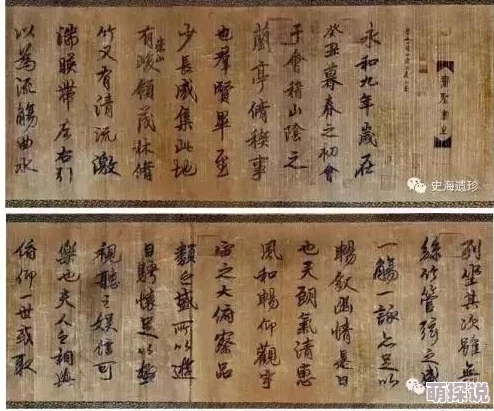 永和九年歲在
癸丑暮春之初會
于會稽山陰之
蘭亭脩稧事
也群賢畢至
少長咸集此地
有崇山峻領茂林脩
竹又有清流激
湍暎帶左右引
以為流觴曲水
史海遗珍
列坐其次雖無
絲竹管弦之盛
一觴一詠亦足以
暢敘幽情是日
也天朗氣清惠
風和暢仰觀宇
宙之大俯察品
類之盛所以遊
目騁懷足以極
視聽之娛信可
樂也夫人之相與
俯仰一世或取
史海遗珍
萌探说